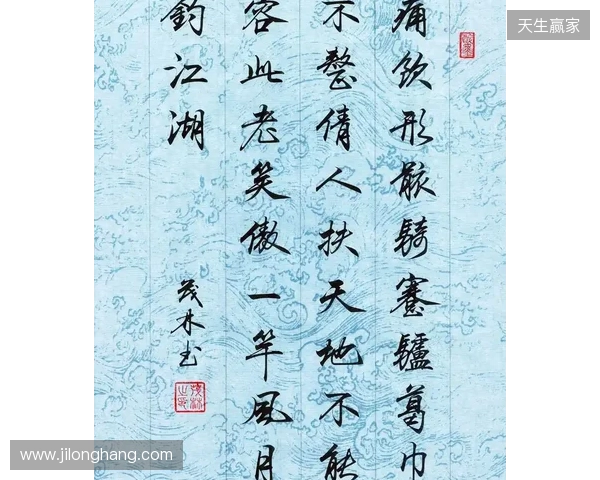 天生赢家
痛饮形骸騎蹇驢葛巾
不整倩人扶天地不能
容此老笑傲一竿風月
釣江湖
茂林书
www.jilonghang.com